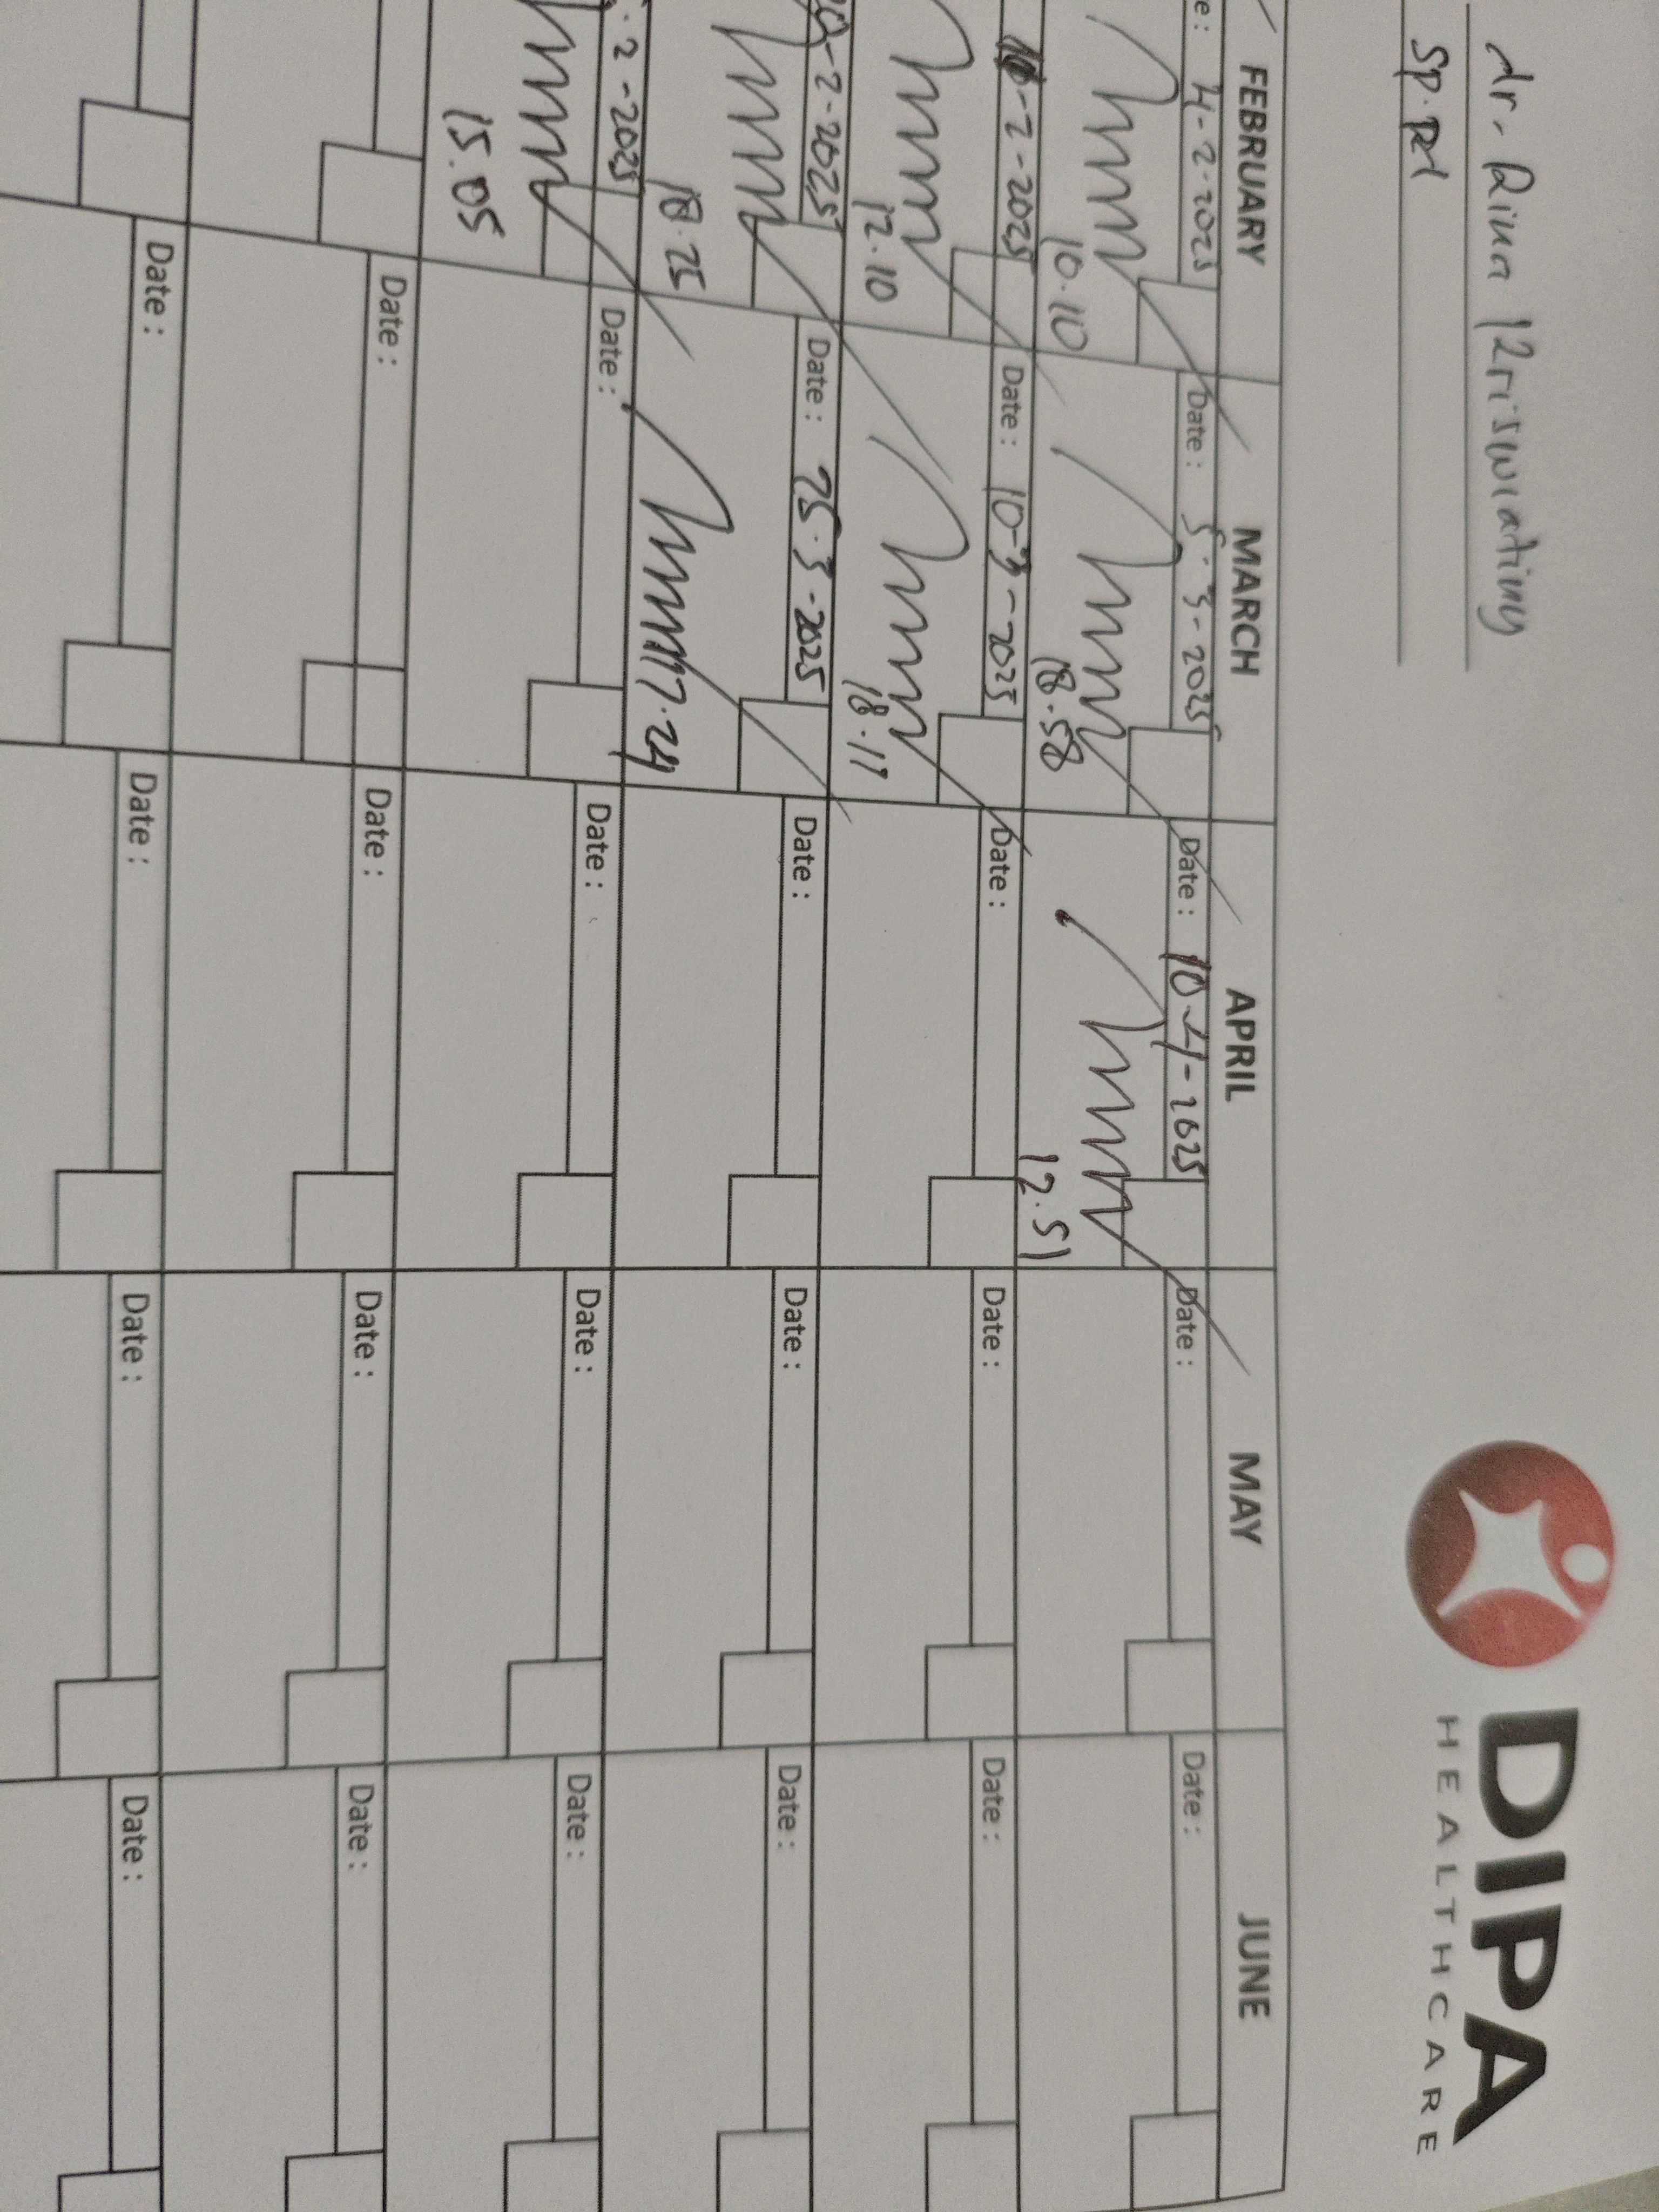 dr. Rina Kriswiatiny
Sp.Pd
DIPA
HEALTHCARE
FEBRUARY MARCH APRIL MAY JUNE
e: 4-2-2025 Date: 5-3-2025 Date: 10-4-2025 Date: Date:
10.10 18.58 12.51
-2-2025 Date: 10-3-2025 Date: Date: Date:
12.10 18.11
-2-2025 Date: 25-3-2025 Date: Date: Date:
18.25 17.24
2-2025 Date: Date: Date: Date:
15.05
Date: Date: Date: Date:
Date: Date: Date: Date: